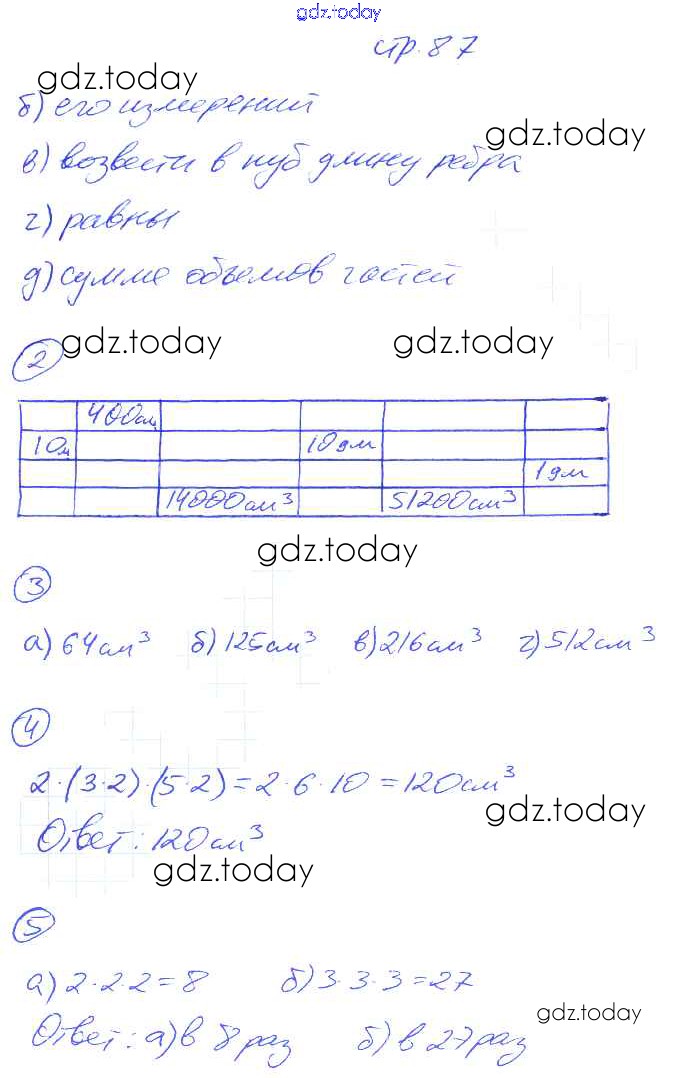 gdz.today
стр. 87
gdz.today
б) его измерений
gdz.today
в) возвести в куб длину ребра
г) равны
д) сумме объемов частей
2 gdz.today gdz.today
400см
10м 10дм
1дм
14000см³ 51200см³
gdz.today
3
а) 64см³ б) 125см³ в) 216см³ г) 512см³
4
2·(3·2)·(5·2)=2·6·10=120см³
gdz.today
Ответ: 120см³
gdz.today
5
а) 2·2·2=8 б) 3·3·3=27
gdz.today
Ответ: а) в 8 раз б) в 27 раз